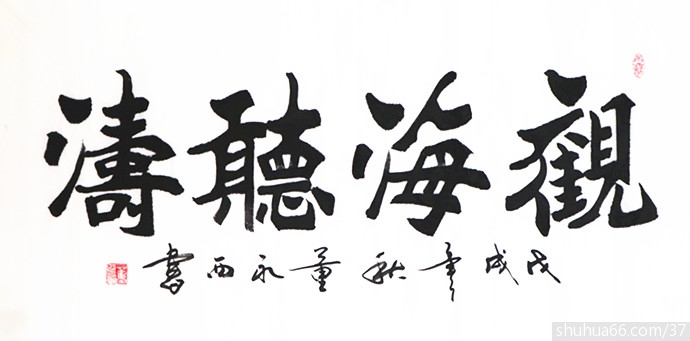 觀海聽濤
戊戌年秋董永西書
shuhua66.com/37